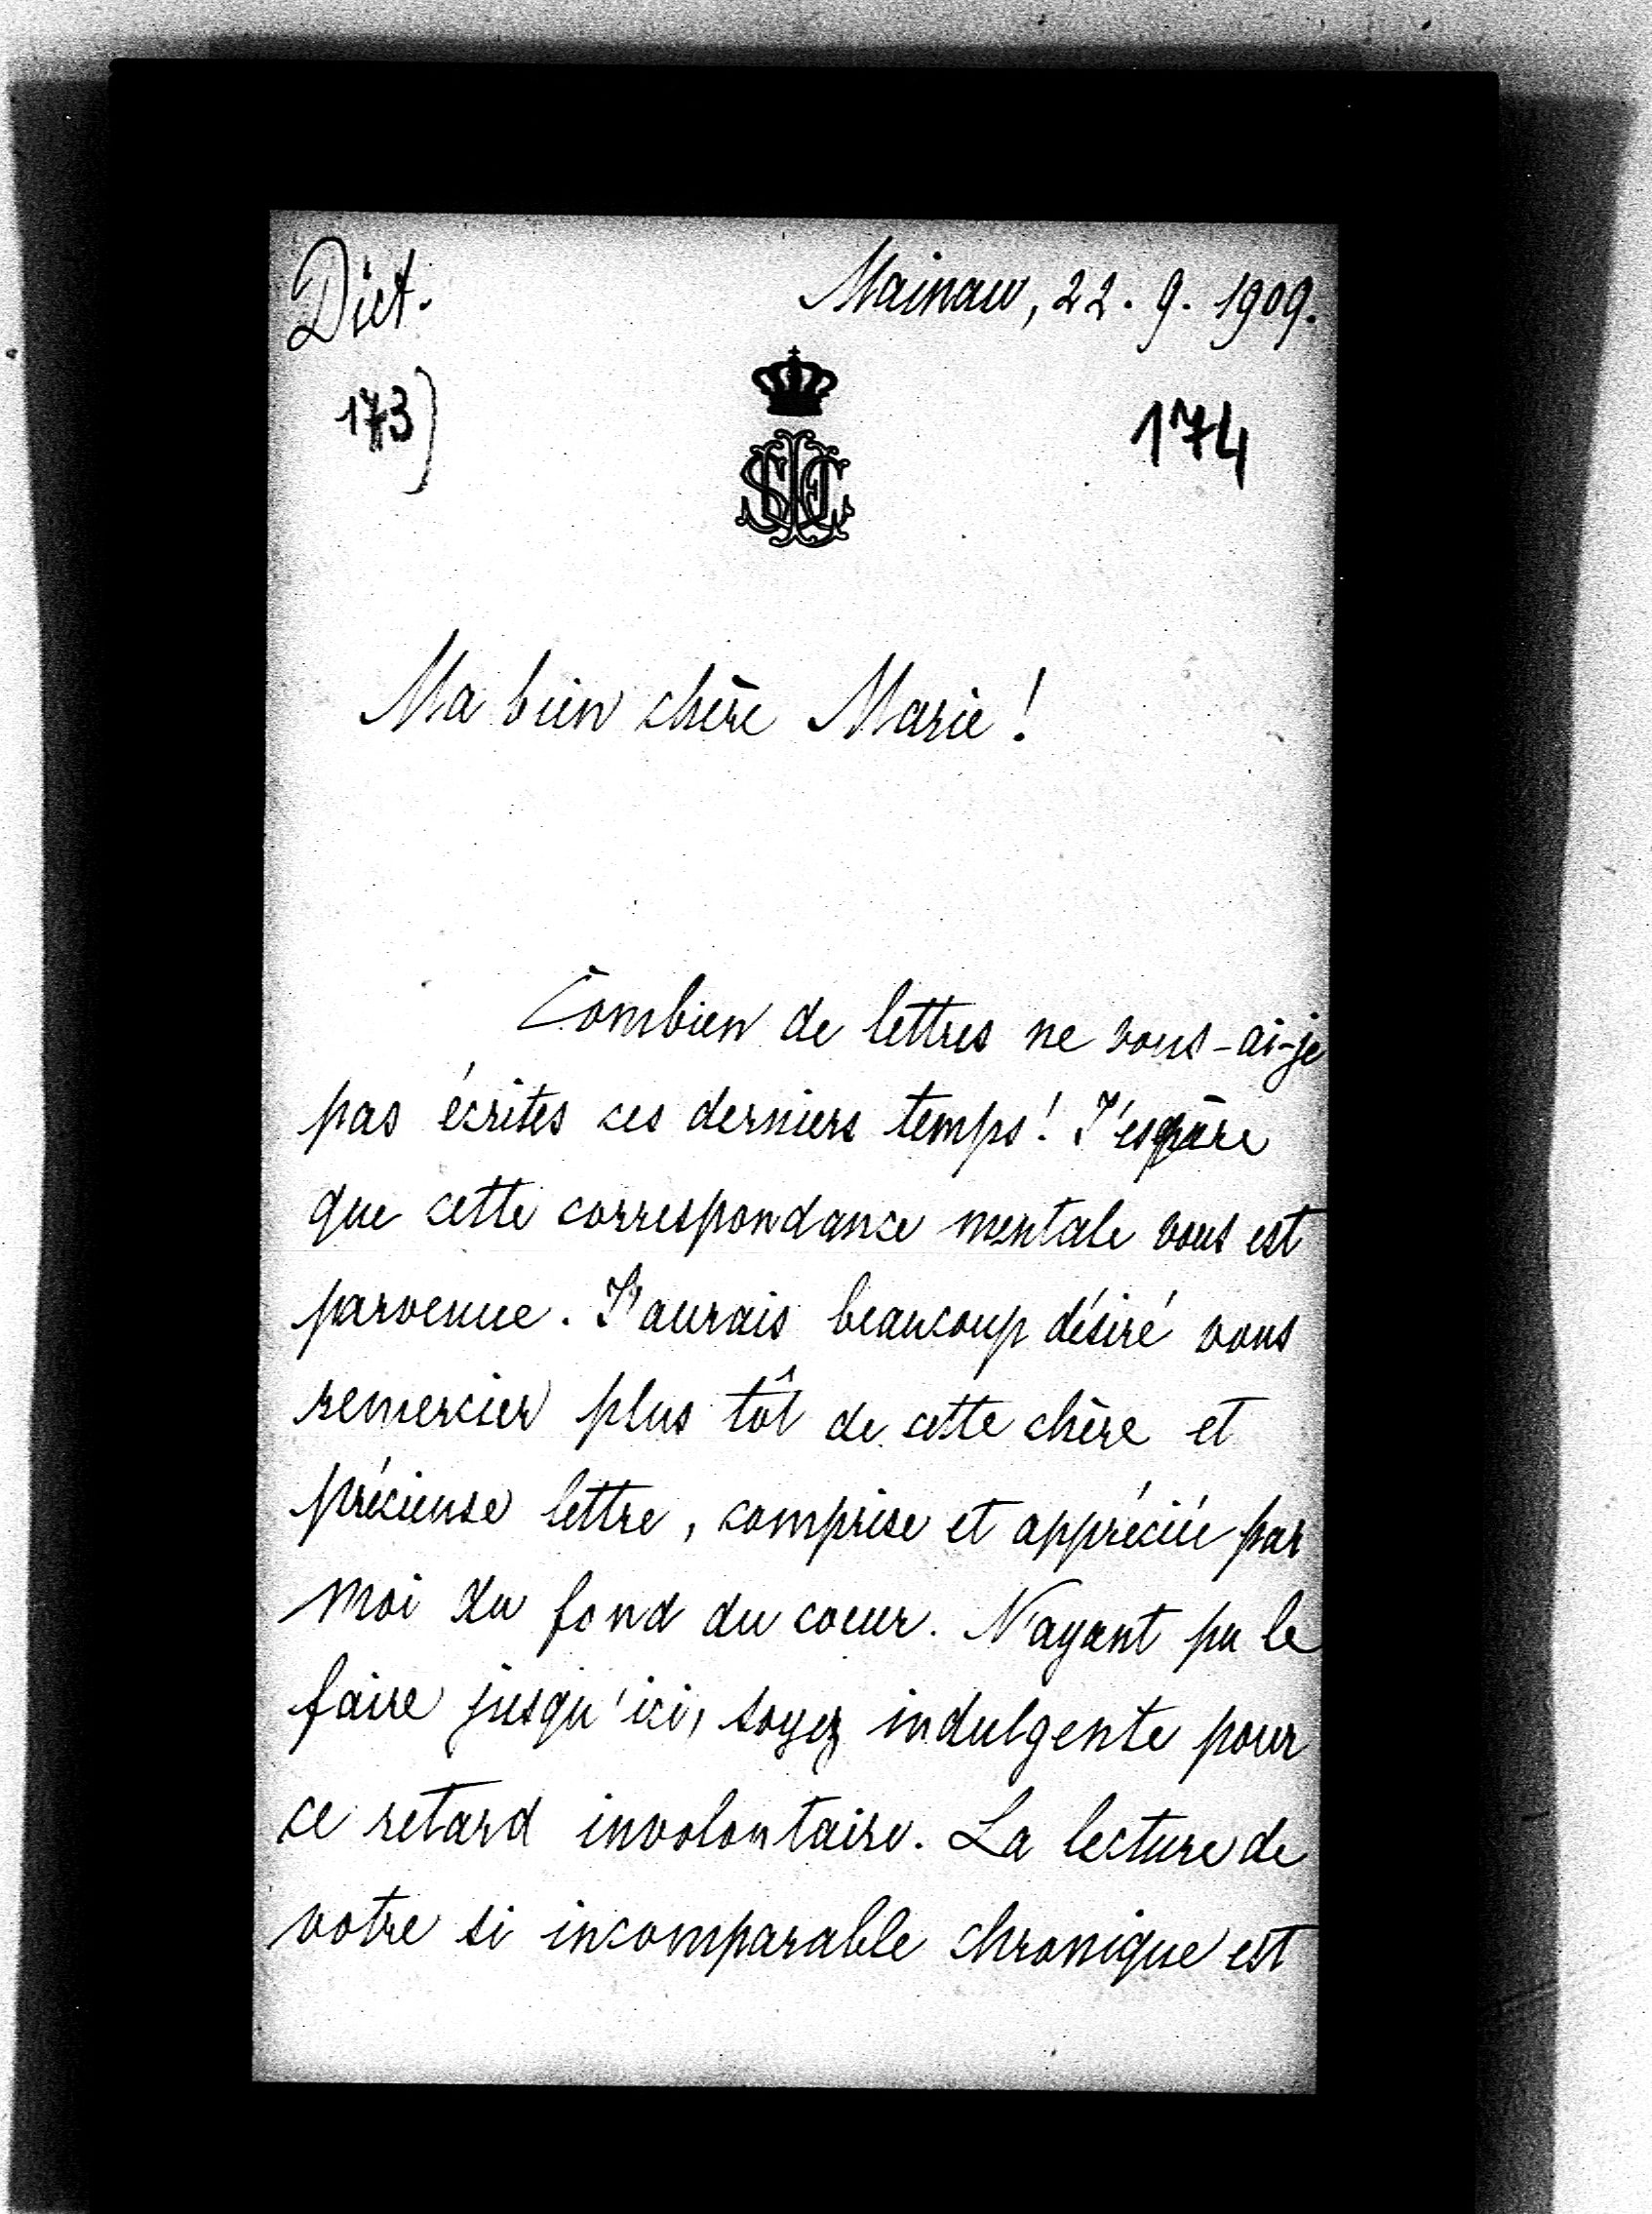 Dict.
Mainau, 22. 9. 1909.
173)
174
Ma bien chère Marie!
Combien de lettres ne vous-ai-je
pas écrites ces derniers temps! J'espère
que cette correspondance mentale vous est
parvenue. J'aurais beaucoup désiré vous
remercier plus tôt de cette chère et
précieuse lettre, comprise et appréciée par
moi du fond du coeur. N'ayant pu le
faire jusqu'ici, soyez indulgente pour
ce retard involontaire. La lecture de
votre si incomparable chronique est